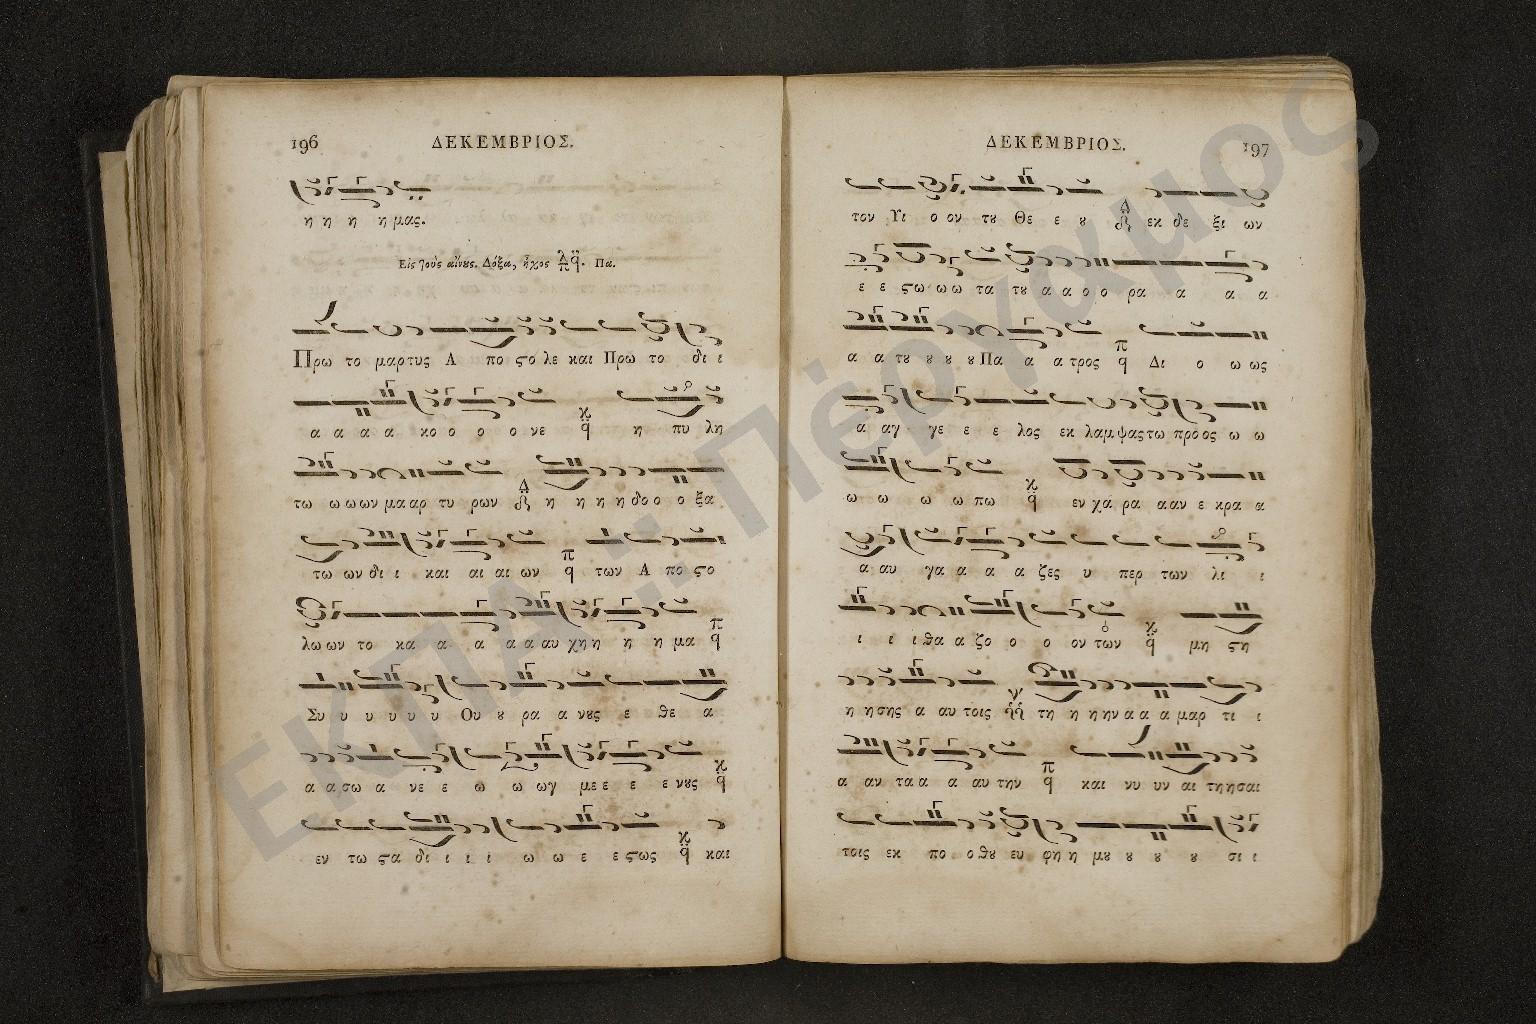 196 ΔΕΚΕΜΒΡΙΟΣ.
η η η η μας.
Εἰς τοὺς αἴνους. Δόξα, ἦχος πλ q. Πα.
Πρω το μαρτυς Α πο ςο λε και Πρω το δι ι
α α α α κο ο ο ο νε q η πυ λη
τω ω ω ων μα αρ τυ ρων Δ η η η η δο ο ο ξα
τω ων δι ι και αι αι ων q των Α πο ςο
λω ων το κα α α α α αυ χη η η η μα q
Συ υ υ υ υ υ Ου ȣ ρα α νȣς ε θε α
α α σω α νε ε ω ω ωγ με ε ε ε ε νȣς q
εν τω ςα δι ι ι ι ω ω ε ε ςως q και
ΔΕΚΕΜΒΡΙΟΣ. 197
τον Υι ο ον τȣ Θε ε ȣ Δ εκ δε ξι ων
ε ε ςω ω ω τα τȣ α α ο ο ρα α α α
α α τȣ ȣ ȣ ȣ Πα α α τρος q Δι ο ω ως
α αγ γε ε ε λος εκ λαμψας τω προ ος ω ω
ω ω ω ω πω q εν χα ρα α αν ε κρα α
α αυ γα α α α ζες υ περ των λι ι
ι ι ι θα α ζο ο ο ον των q μη ςη
η ησης α αυ τοις τη η η ην α α α μαρ τι ι
α αν τα α α αυ την q και νυ υν αι τη η σαι
τοις εκ πο ο θȣ ευ φη η μȣ ȣ ȣ ȣ σι ι
ΕΚΠΑ :: Πέργαμος